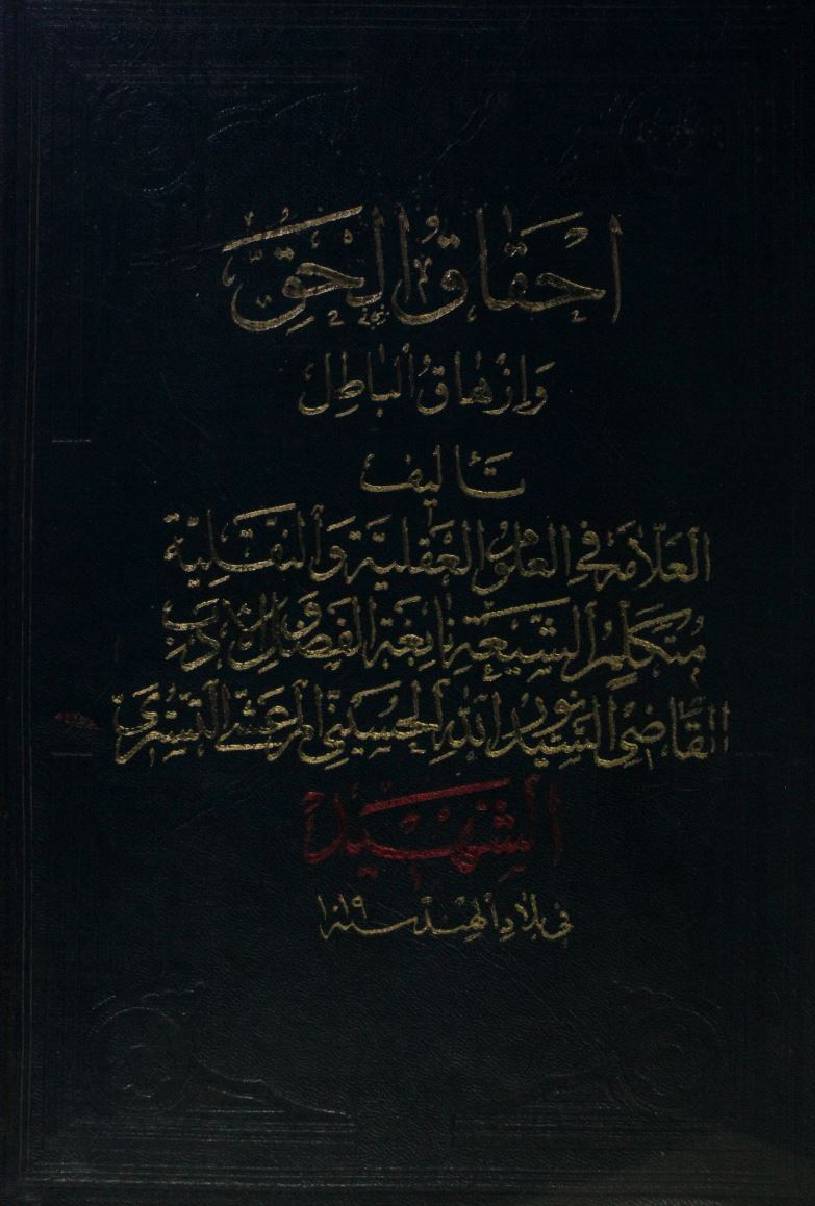 احْقَاقُ الحَقِّ
وَإزْهَاقُ البَاطِل
تَأليف
العَلّامَة في العُلوُمِ العَقْلِيَّةِ وَالنَقْلِيَّة
مُتَكَلِّمِ الشِّيعَةِ نَابِغَةِ الفَضْلِ وَالأدَبِ
القَاضِي السَّيِّد نُورُ اللّٰهِ الحُسَيْنِيِّ المَرْعَشِيِّ التُسْتَرِيِّ
الشَّهِيدْ
في بِلادِ الهِنْدِ سنة ١٠١٩